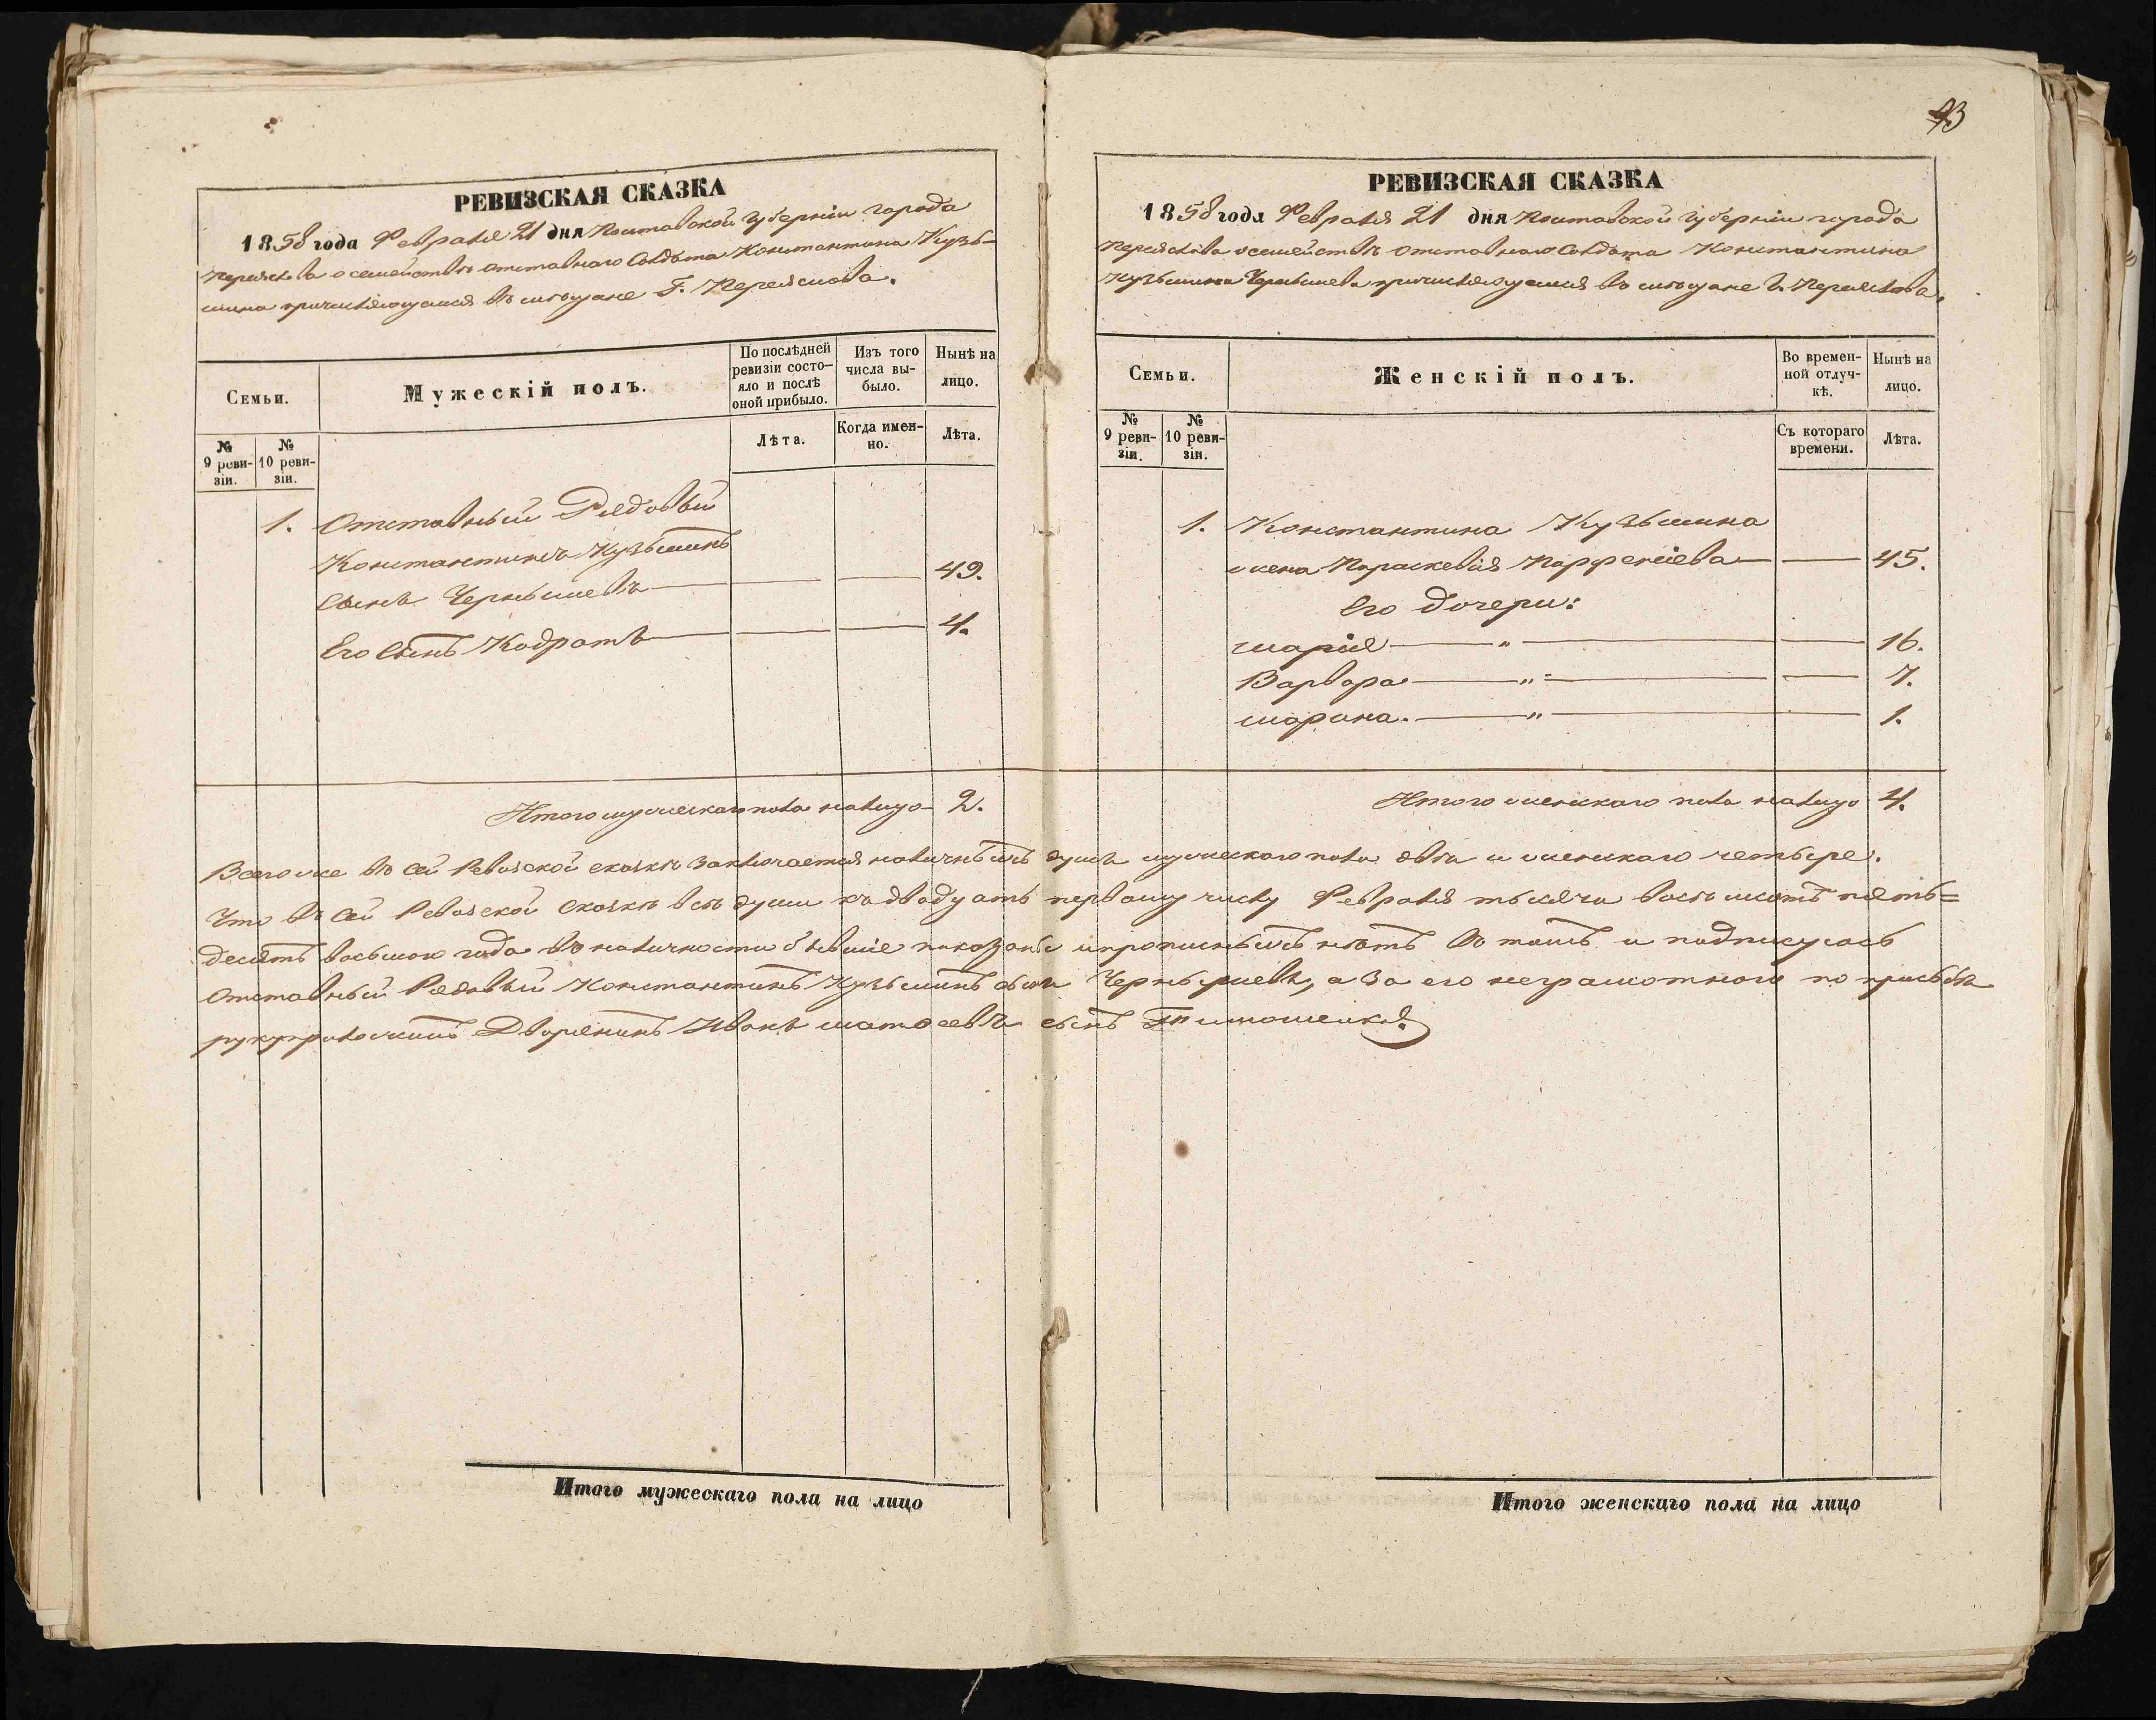 РЕВИЗСКАЯ СКАЗКА
1858 года Февраля 21 дня Полтавской Губерніи города
Переяслова о семействѣ отставнаго Солдата Константина Кузь-
мина причисляющемся въ мѣщане Г. Переяслова.
Семьи.
Мужескій полъ.
По послѣдней ревизіи состояло и послѣ оной прибыло.
Изъ того числа выбыло.
Нынѣ на лицо.
№ 9 ревизіи.
№ 10 ревизіи.
Лѣта.
Когда именно.
Лѣта.
1. Отставный Рядовый
Константинъ Кузьминъ
сынъ Чернышевъ 49.
Его сынъ Кодратъ 4.
Итого мужескаго пола налицо 2.
93
РЕВИЗСКАЯ СКАЗКА
1858 года Февраля 21 дня Полтавской Губерніи города
Переяслова о семействѣ отставнаго Солдата Константина
Кузьмина Чернышева причисляющемся въ мѣщане Г. Переяслова.
Семьи.
Женскій полъ.
Во временной отлучкѣ.
Нынѣ на лицо.
№ 9 ревизіи.
№ 10 ревизіи.
Съ котораго времени.
Лѣта.
1. Константина Кузьмина
жена Параскевія Парфеніева 45.
Его дочери:
Марія " 16.
Варвара " 7.
Марина. " 1.
Итого женскаго пола налицо 4.
Всего же въ сей Ревизской сказкѣ заключается наличныхъ душъ мужескаго пола двѣ и женскаго четыре.
Что въ сей Ревизской сказкѣ всѣ души къ двадцать первому числу Февраля тысяча восемьсотъ пять=
десятъ восьмого года въ наличности бывшіе показаны и прописныхъ нѣтъ въ томъ и подписуюсь
Отставный Рядовый Константинъ Кузьминъ сынъ Чернышевъ, а за его неграмотного по прозьбѣ
руку приложилъ Дворянинъ Иванъ Матвѣевъ сынъ Тимошенко.
Итого мужескаго пола на лицо
Итого женскаго пола на лицо